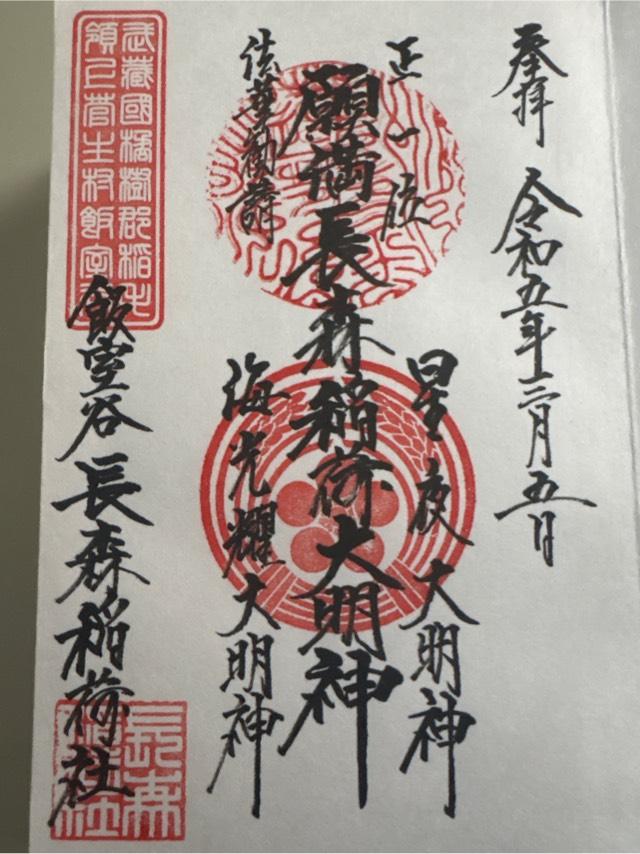 奉拝
令和五年三月五日
正一位
星夜大明神
願満長森稲荷大明神
法華勧請
海光耀大明神
武蔵國橘樹郡稲毛
領上菅生村飯室谷
飯室谷
長森稲荷社
長森
稲荷社